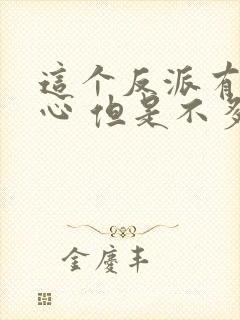 這个反派有
心 但是不多
金慶丰